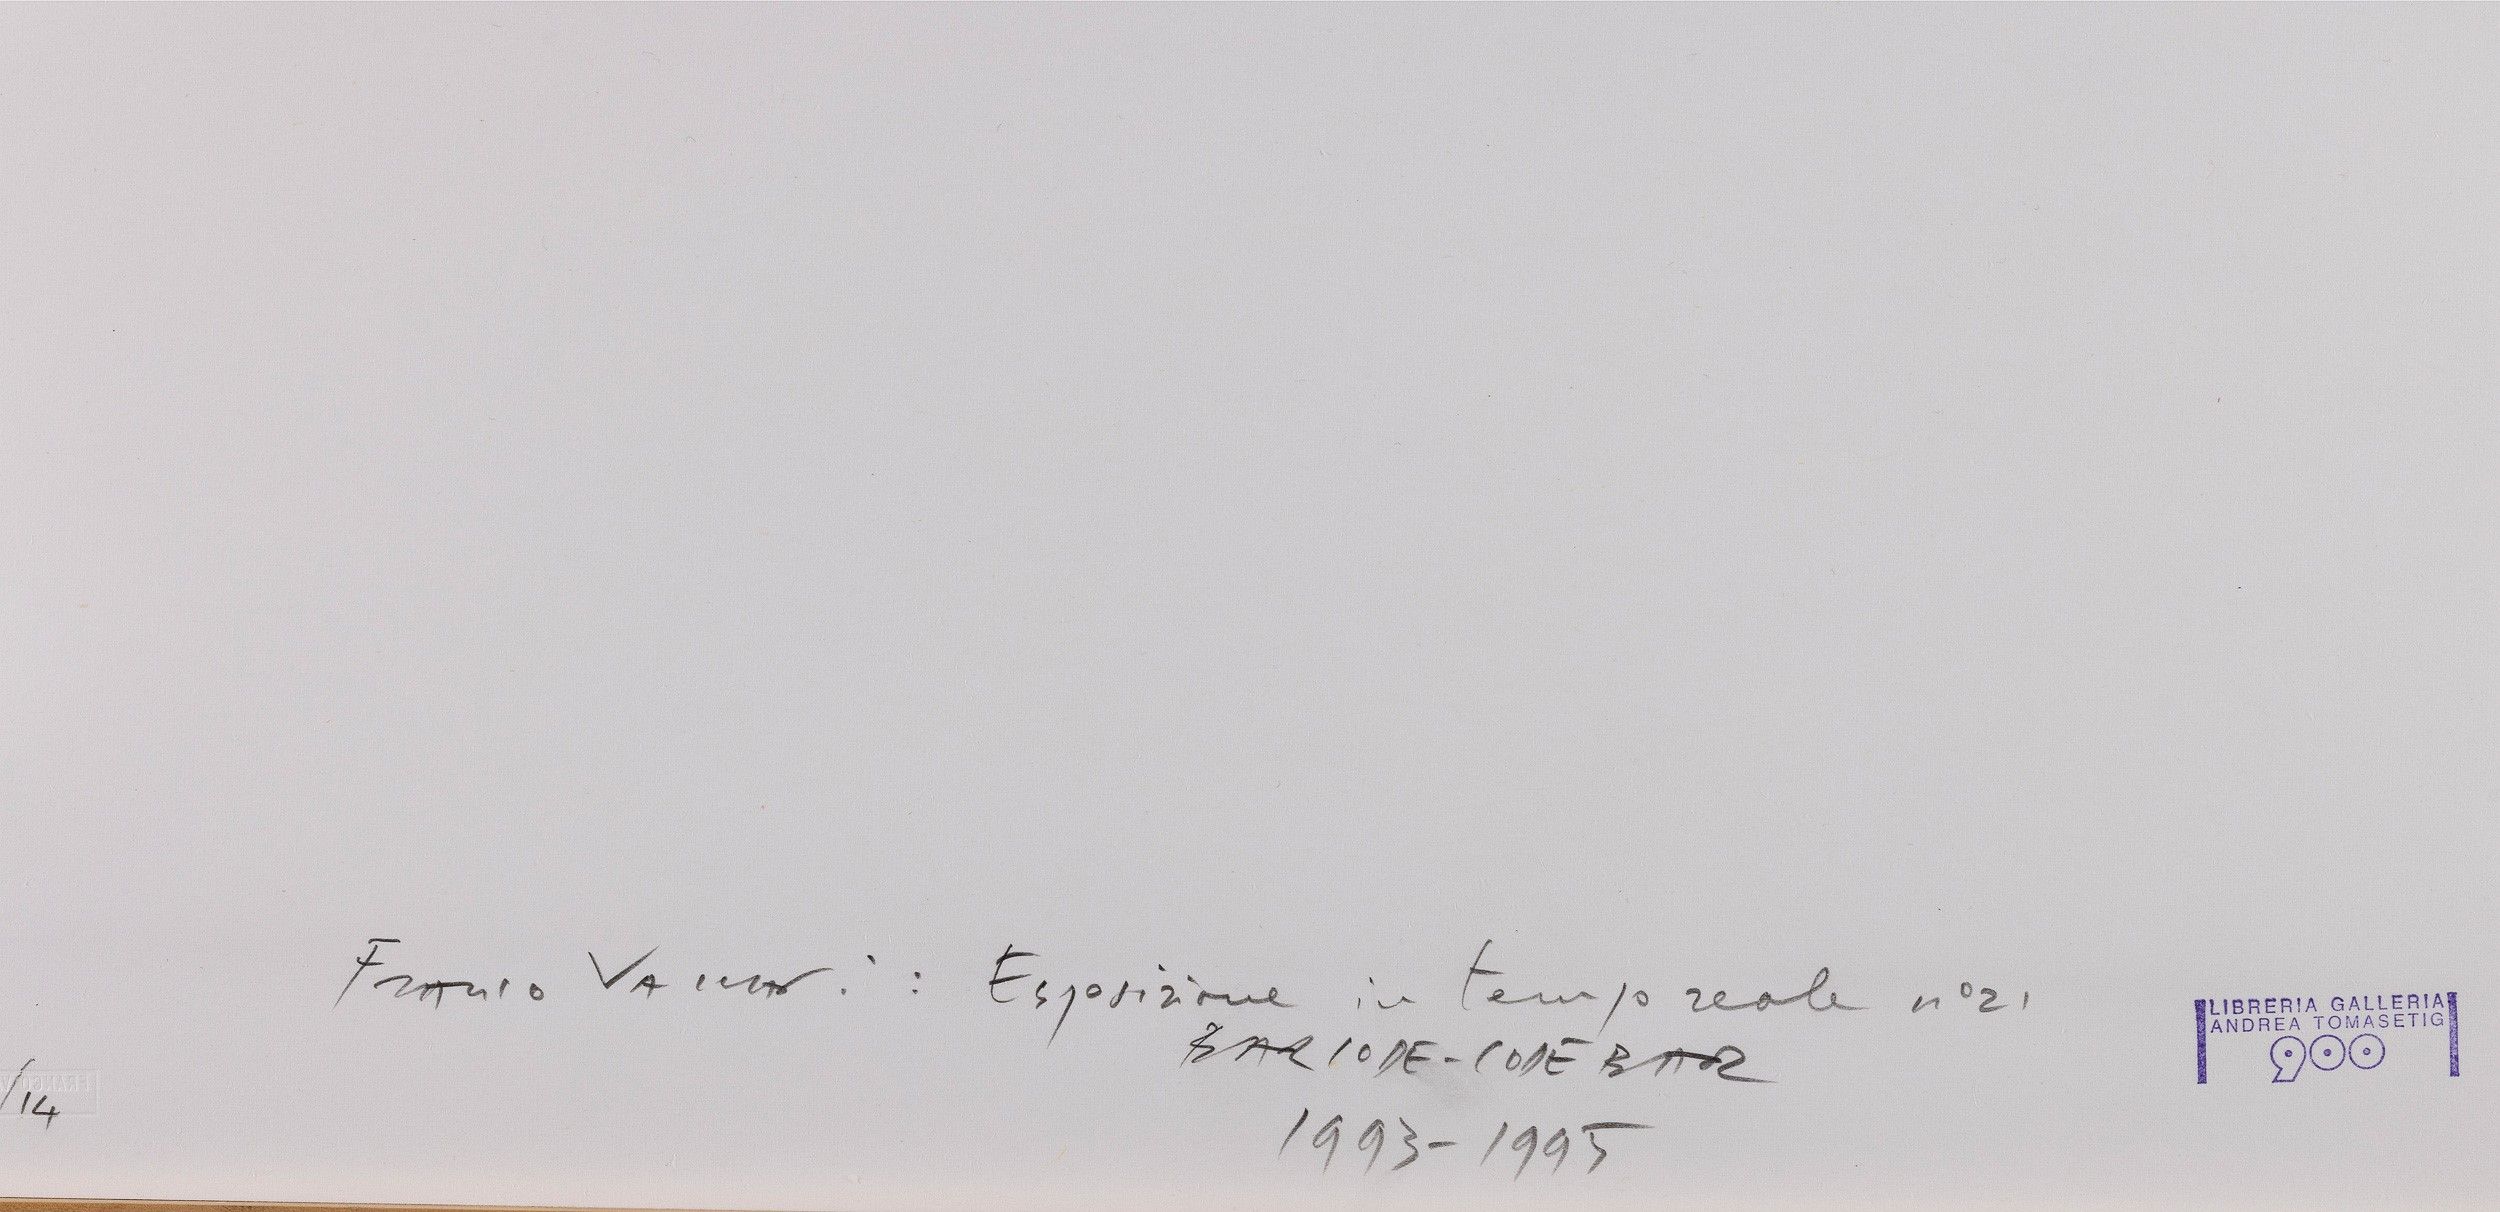 Franco Vaccari: Esposizione in tempo reale n° 21
BAR CODE-CODE BAR
1993-1995
/14
LIBRERIA GALLERIA
ANDREA TOMASETIG
900